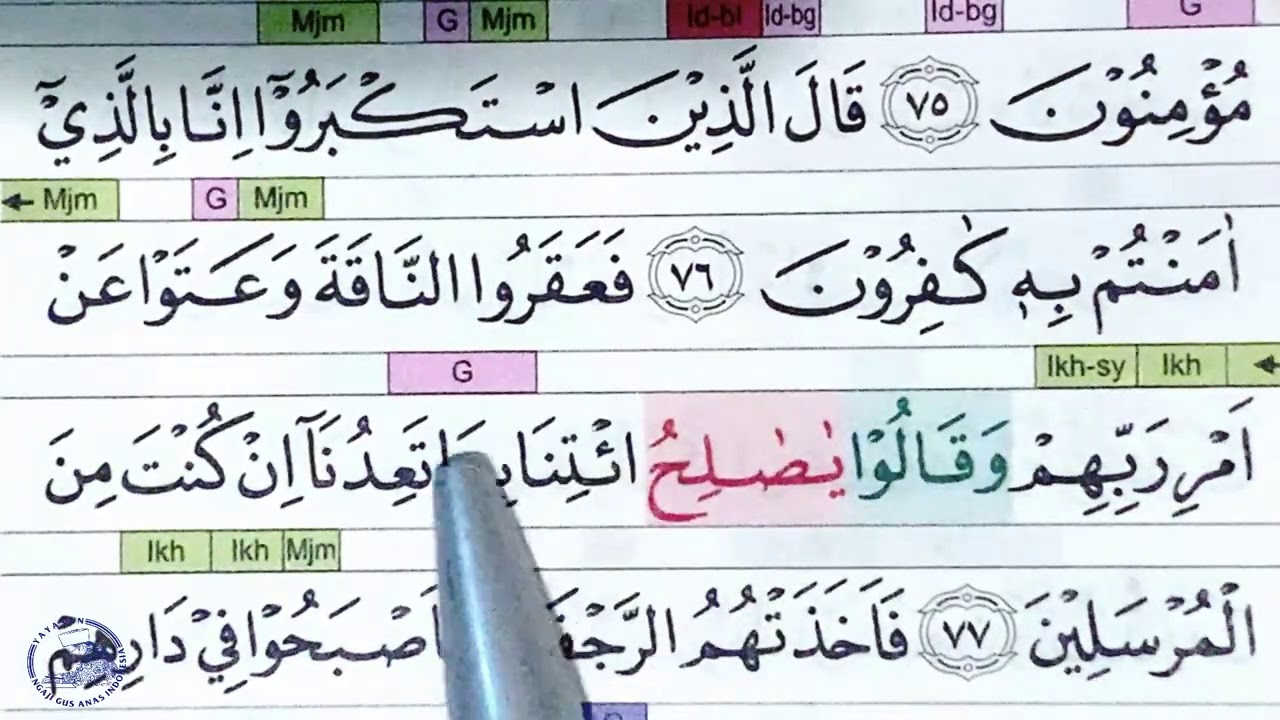 Mjm G Mjm Id-bl Id-bg Id-bg G
مُؤْمِنُوْنَ ٧٥ قَالَ الَّذِيْنَ اسْتَكْبَرُوْٓا اِنَّا بِالَّذِيْٓ
← Mjm G Mjm
اٰمَنْتُمْ بِهٖ كٰفِرُوْنَ ٧٦ فَعَقَرُوا النَّاقَةَ وَعَتَوْا عَنْ
G Ikh-sy Ikh ←
اَمْرِ رَبِّهِمْ وَقَالُوْا يٰصٰلِحُ ائْتِنَا تَعِدُنَآ اِنْ كُنْتَ مِنَ
Ikh Ikh Mjm
الْمُرْسَلِيْنَ ٧٧ فَاَخَذَتْهُمُ اَصْبَحُوْا فِيْ دَارِهِمْ
YAYASAN NGAJI GUS ANAS INDONESIA